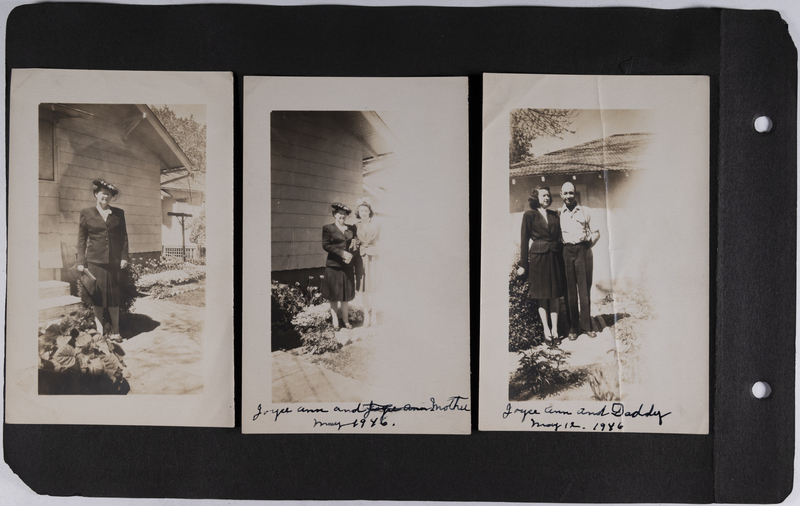 Joyce Ann and Joyce Ann Mother
May 1946.
Joyce Ann and Daddy
May 12. 1946